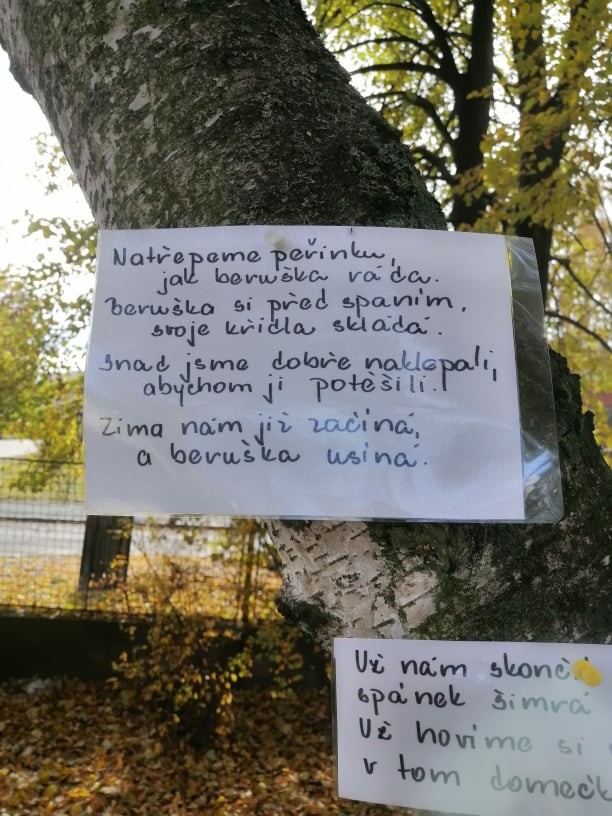 Natřepeme peřinku,
jak beruška ráda.
Beruška si před spaním,
svoje křídla skládá.
Snad jsme dobře naklepali,
abychom ji potěšili.
Zima nám již začíná,
a beruška usíná.
Už nám
spánek šimrá
Už hovíme si
v tom